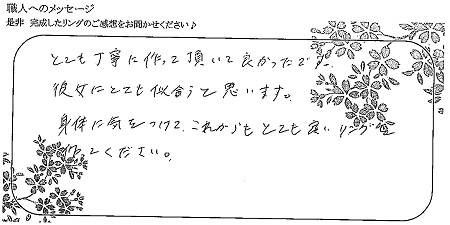 職人へのメッセージ
是非 完成したリングのご感想をお聞かせください♪
とても丁寧に作って頂いて良かったです。
彼女にとても似合うと思います。
身体に気をつけて、これからもとても良いリングを
作ってください。